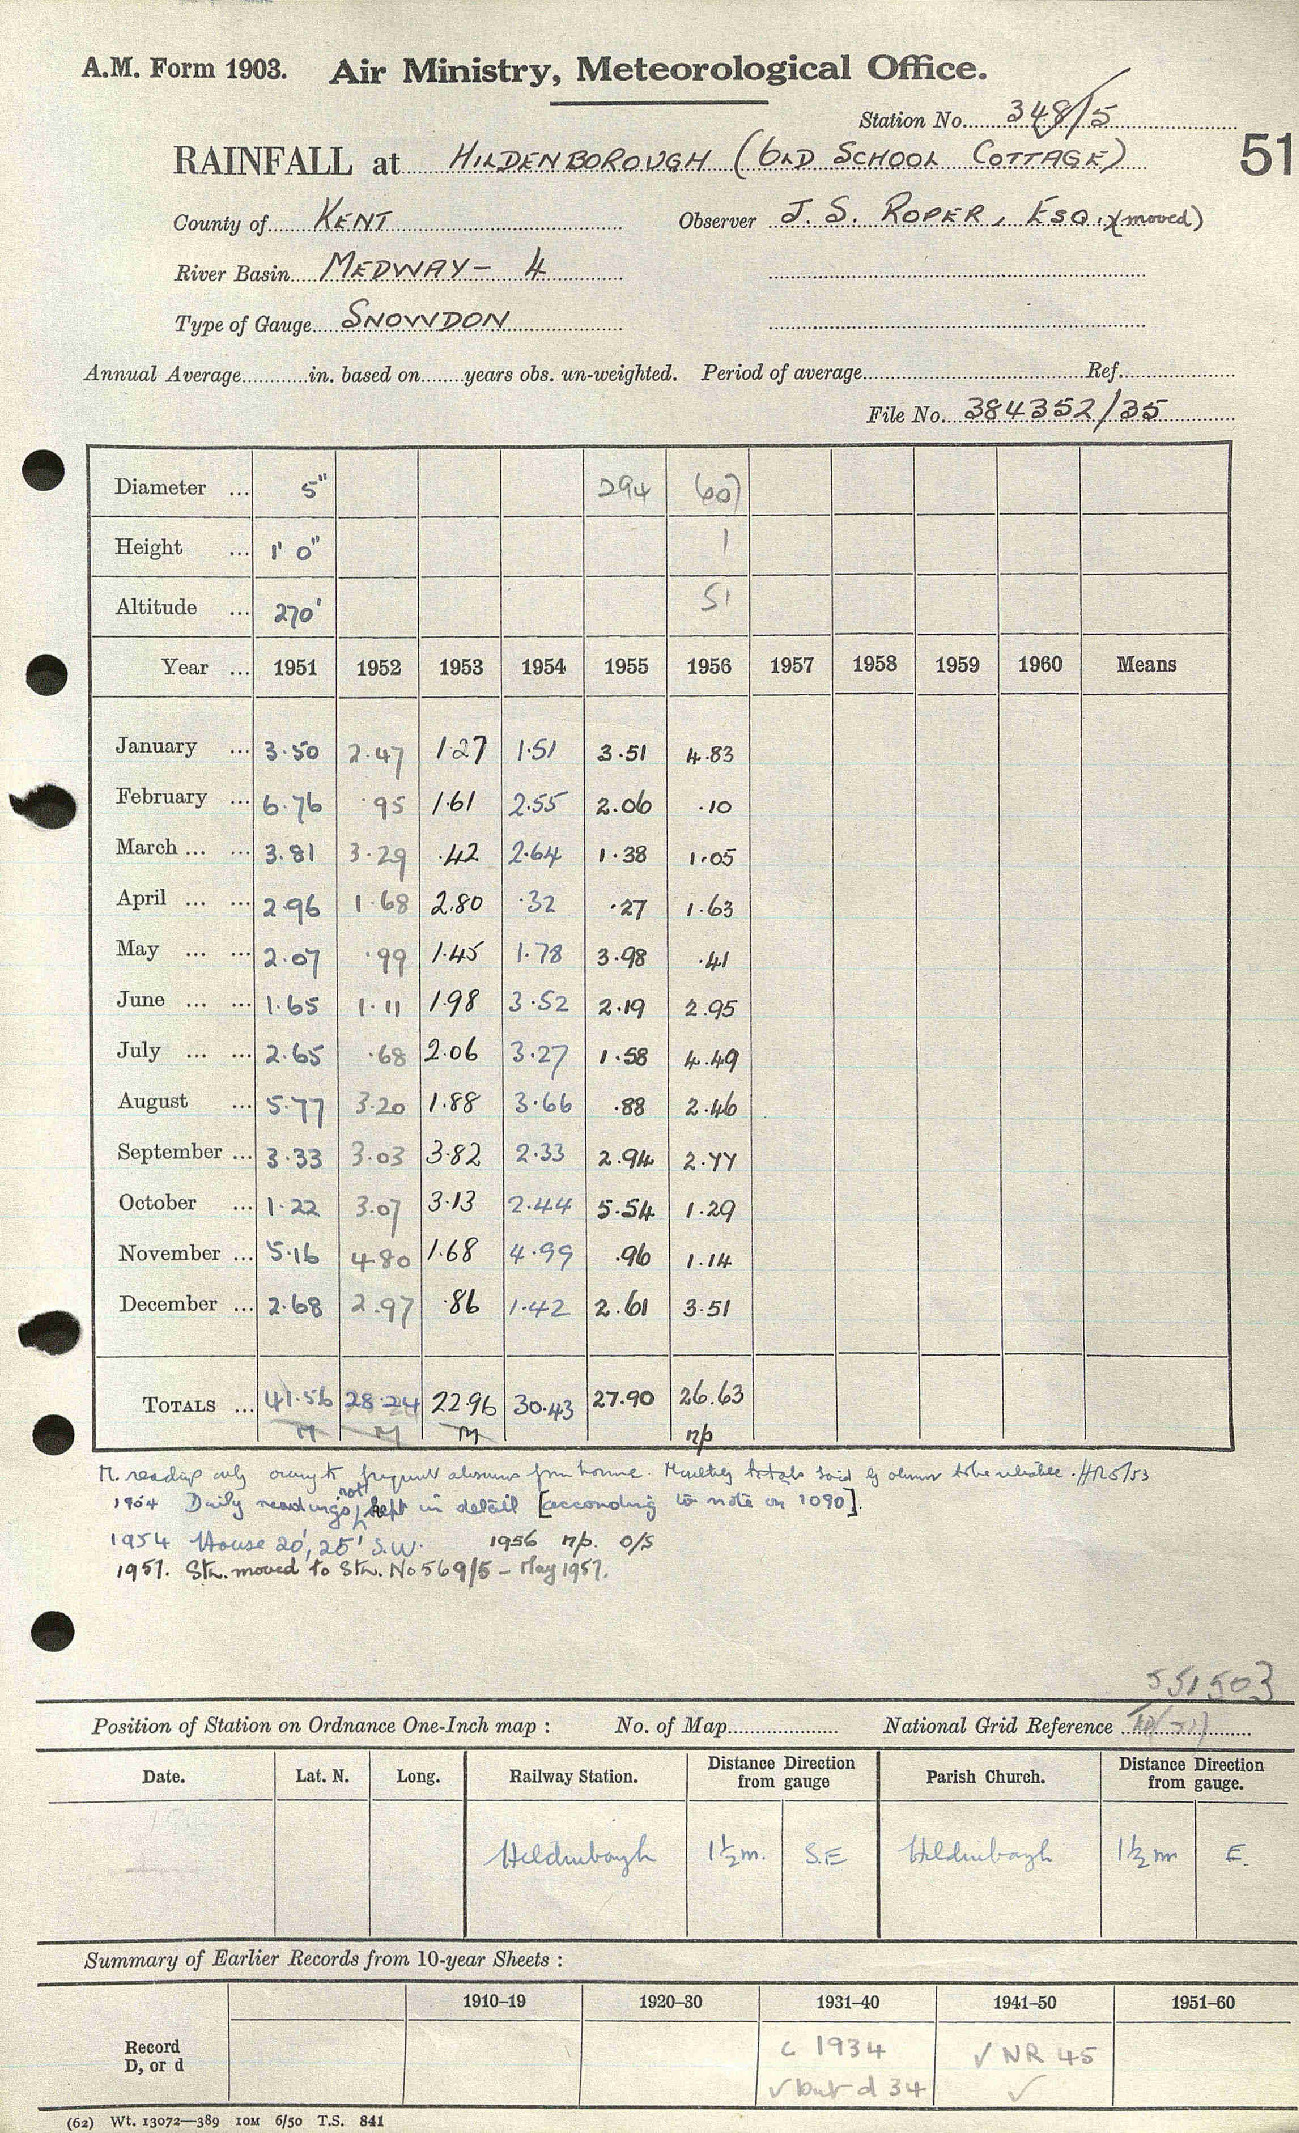 A.M. Form 1903. Air Ministry, Meteorological Office.
Station No. 348/5
51
RAINFALL at HILDENBOROUGH (OLD SCHOOL COTTAGE)
County of KENT Observer J. S. ROPER, ESQ. (moved)
River Basin MEDWAY - 4
Type of Gauge SNOWDON
Annual Average in. based on years obs. un-weighted. Period of average Ref.
File No. 384352/35
Diameter ... 5" 294 (60)
Height ... 1' 0" 1
Altitude ... 270' 51
Year ... 1951 1952 1953 1954 1955 1956 1957 1958 1959 1960 Means
January ... 3.50 2.47 1.27 1.51 3.51 4.83
February ... 6.76 .95 1.61 2.55 2.06 .10
March ... ... 3.81 3.29 .42 2.64 1.38 1.05
April ... ... 2.96 1.68 2.80 .32 .27 1.63
May ... ... 2.07 .99 1.45 1.78 3.98 .41
June ... ... 1.65 1.11 1.98 3.52 2.19 2.95
July ... ... 2.65 .68 2.06 3.27 1.58 4.49
August ... 5.77 3.20 1.88 3.66 .88 2.46
September ... 3.33 3.03 3.82 2.33 2.94 2.77
October ... 1.22 3.07 3.13 2.44 5.54 1.29
November ... 5.16 4.80 1.68 4.99 .96 1.14
December ... 2.68 2.97 .86 1.42 2.61 3.51
TOTALS ... 41.56 28.24 22.96 30.43 27.90 26.63
M M M n/p
M. reading only owing to frequent absences from home. Monthly totals said by observer to be reliable. HR 5/53
1954 Daily readings not kept in detail [according to note on 1090].
1954 House 20', 25' S.W. 1956 n/p. o/s
1957. Stn. moved to Stn. No 569/5 - May 1957.
551503
Position of Station on Ordnance One-Inch map : No. of Map National Grid Reference
Date. Lat. N. Long. Railway Station. Distance Direction from gauge Parish Church. Distance Direction from gauge.
Hildenborough 1½m. S.E Hildenborough 1½m E.
Summary of Earlier Records from 10-year Sheets :
1910–19 1920–30 1931–40 1941–50 1951–60
Record D, or d
c 1934 ✓ NR 45
✓ but d 34 ✓
(62) Wt. 13072—389 10M 6/50 T.S. 841